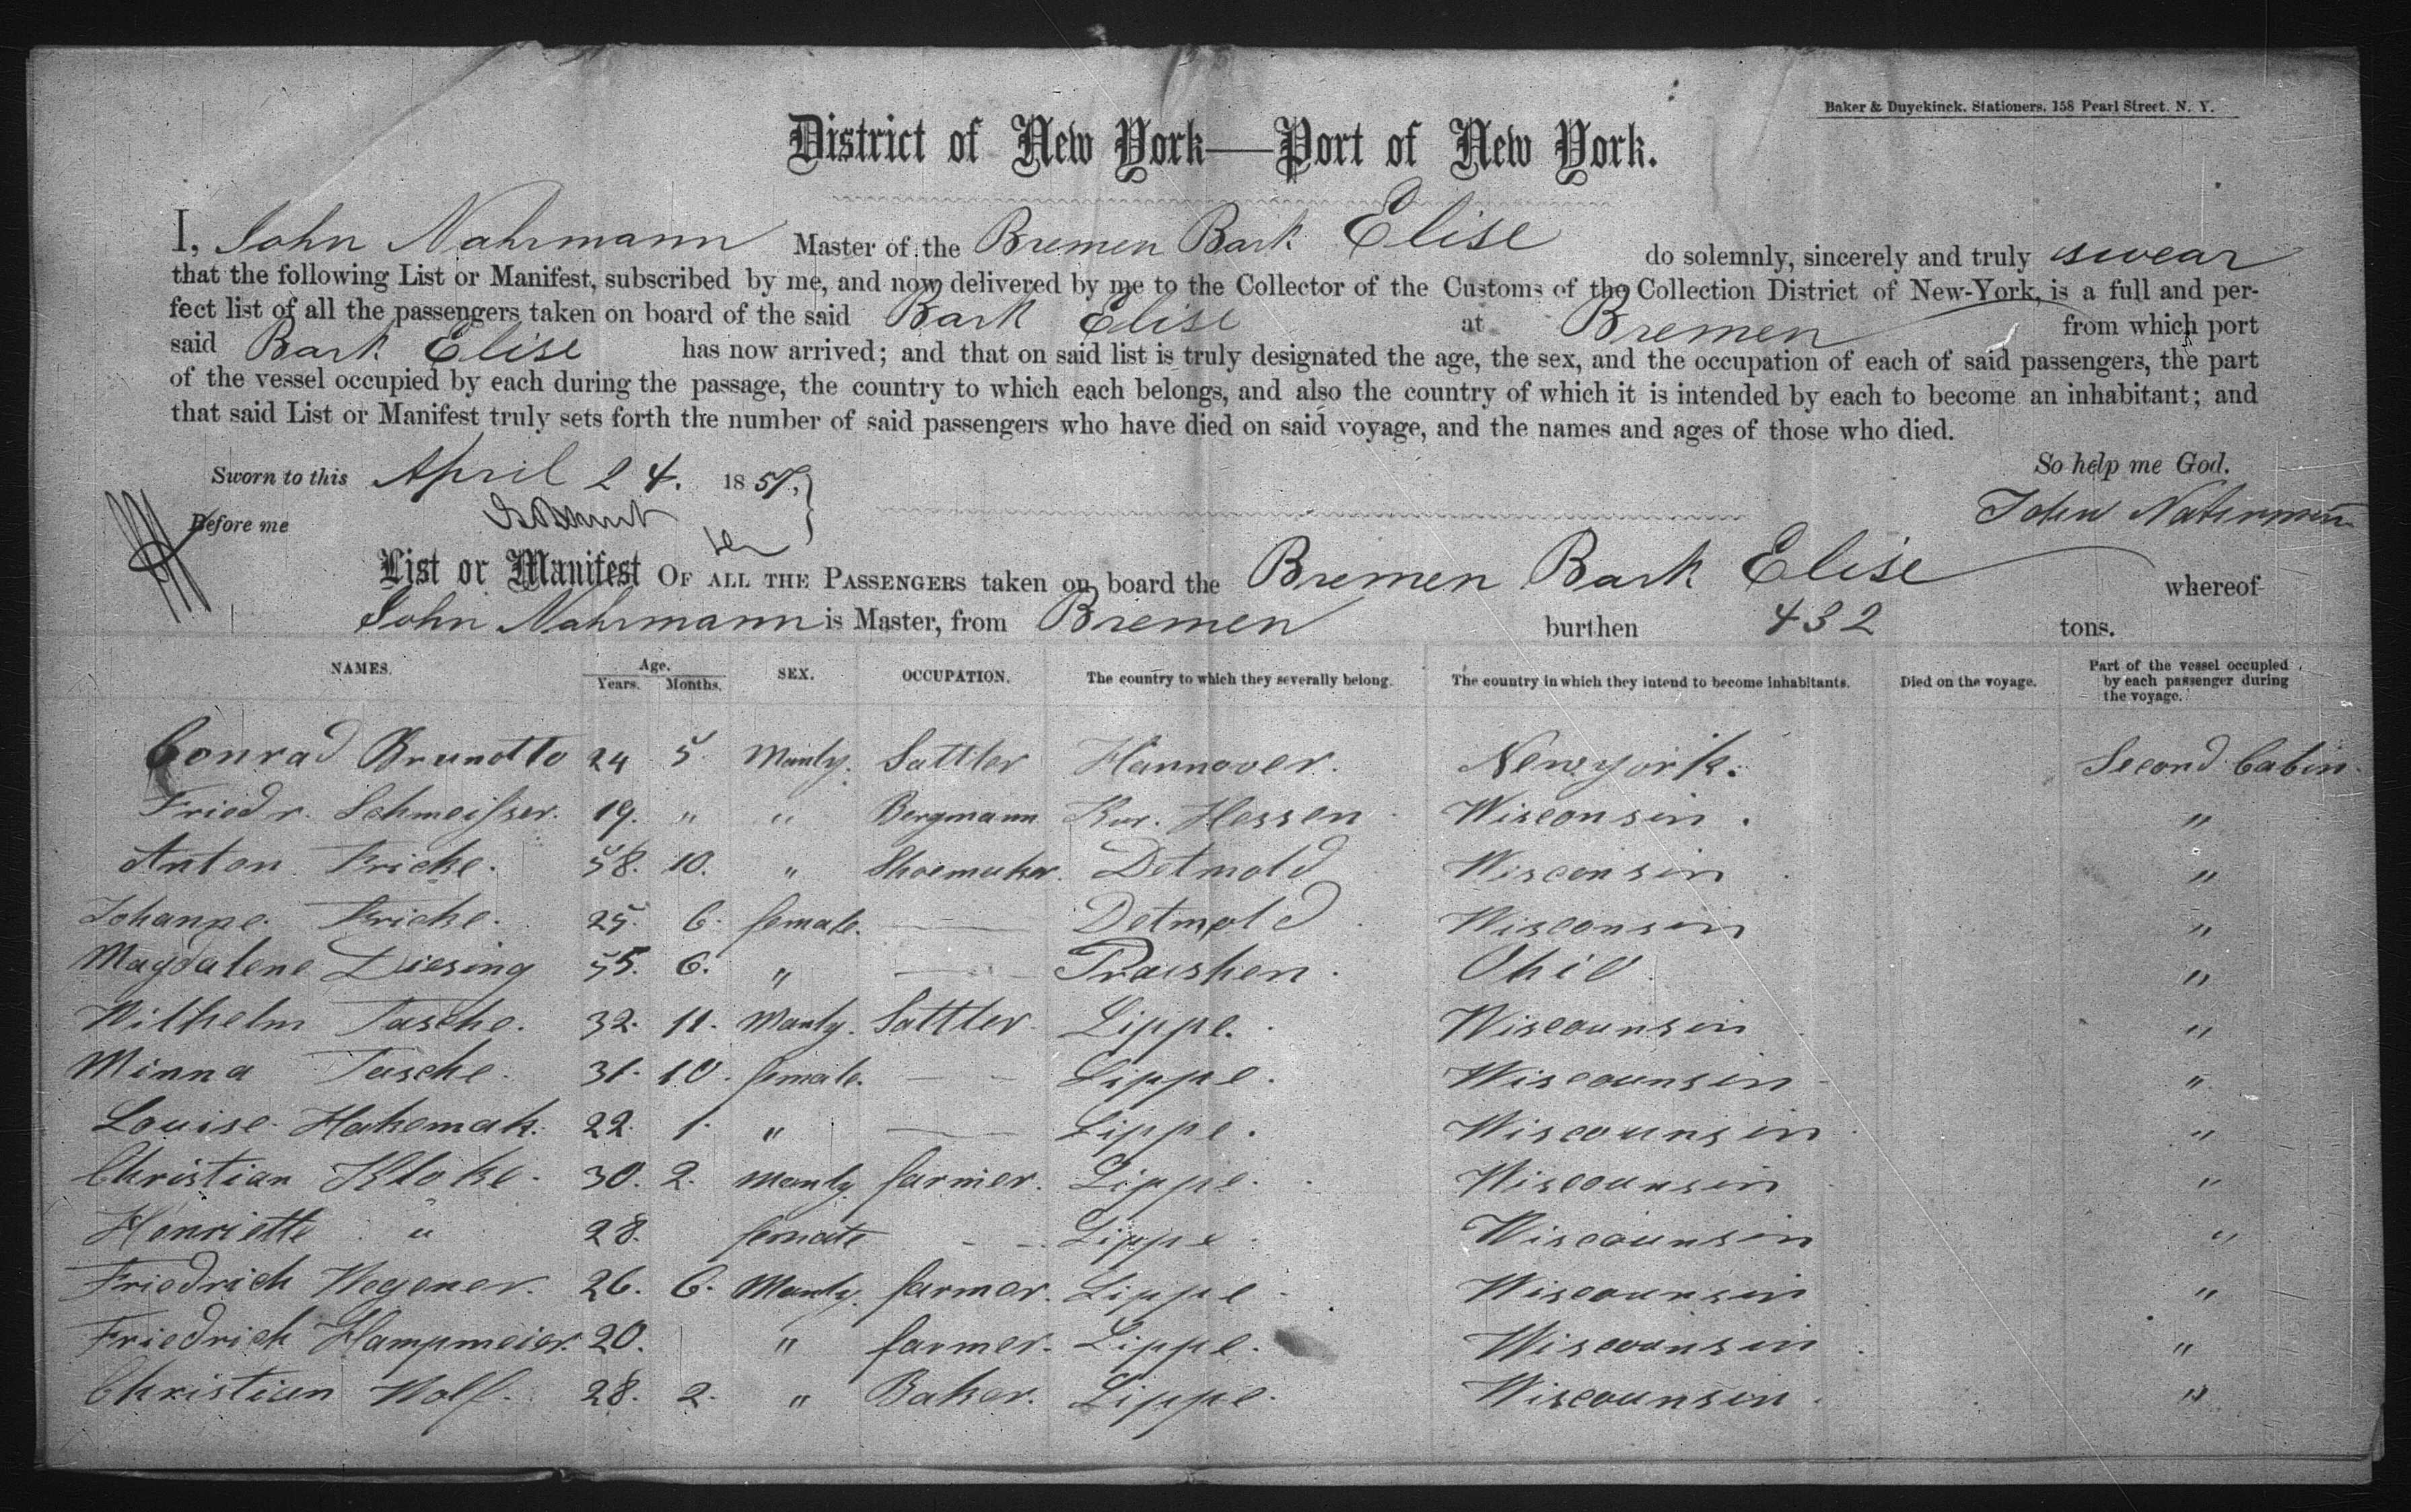 Baker & Duyckinck, Stationers, 158 Pearl Street, N. Y.
District of New York—Port of New York.
I, John Nahrmann Master of the Bremen Bark Elise do solemnly, sincerely and truly swear
that the following List or Manifest, subscribed by me, and now delivered by me to the Collector of the Customs of the Collection District of New-York, is a full and per-
fect list of all the passengers taken on board of the said Bark Elise at Bremen from which port
said Bark Elise has now arrived; and that on said list is truly designated the age, the sex, and the occupation of each of said passengers, the part
of the vessel occupied by each during the passage, the country to which each belongs, and also the country of which it is intended by each to become an inhabitant; and
that said List or Manifest truly sets forth the number of said passengers who have died on said voyage, and the names and ages of those who died.
So help me God.
Sworn to this April 24. 1857.
John Nahrmann
Before me
List or Manifest OF ALL THE PASSENGERS taken on board the Bremen Bark Elise whereof
John Nahrmann is Master, from Bremen burthen 432 tons.
NAMES. Age. Years. Months. SEX. OCCUPATION. The country to which they severally belong. The country in which they intend to become inhabitants. Died on the voyage. Part of the vessel occupied by each passenger during the voyage.
Conrad Brunotto 24 5 Manly. Sattler Hannover. Newyork. Second Cabin
Friedr. Schmeisser. 19. " " Bergmann Kur. Hessen Wisconsin. "
Anton Fricke. 58. 10. " Shoemaker. Detmold Wisconsin "
Johanne. Fricke. 25. 6. female. — Detmold Wisconsin "
Magdalene Diesing 55. 6. " — Praeshen. Ohio "
Wilhelm Tasche. 32. 11. Manly. Sattler Lippe. Wiscounsin "
Minna Tasche. 31. 10. female. — — Lippe. Wiscounsin "
Louise Hakemak. 22. 1. " — Lippe. Wiscounsin "
Christian Kloke. 30. 2. Manly farmer. Lippe. Wiscounsin "
Henriette " 28. female - - Lippe Wiscounsin "
Friedrich Wegener. 26. 6. Manly. farmer. Lippe Wiscounsin "
Friedrich Hampmeier. 20. " farmer. Lippe. Wiscounsin "
Christian Wolf. 28. 2. " Baker. Lippe. Wiscounsin. "